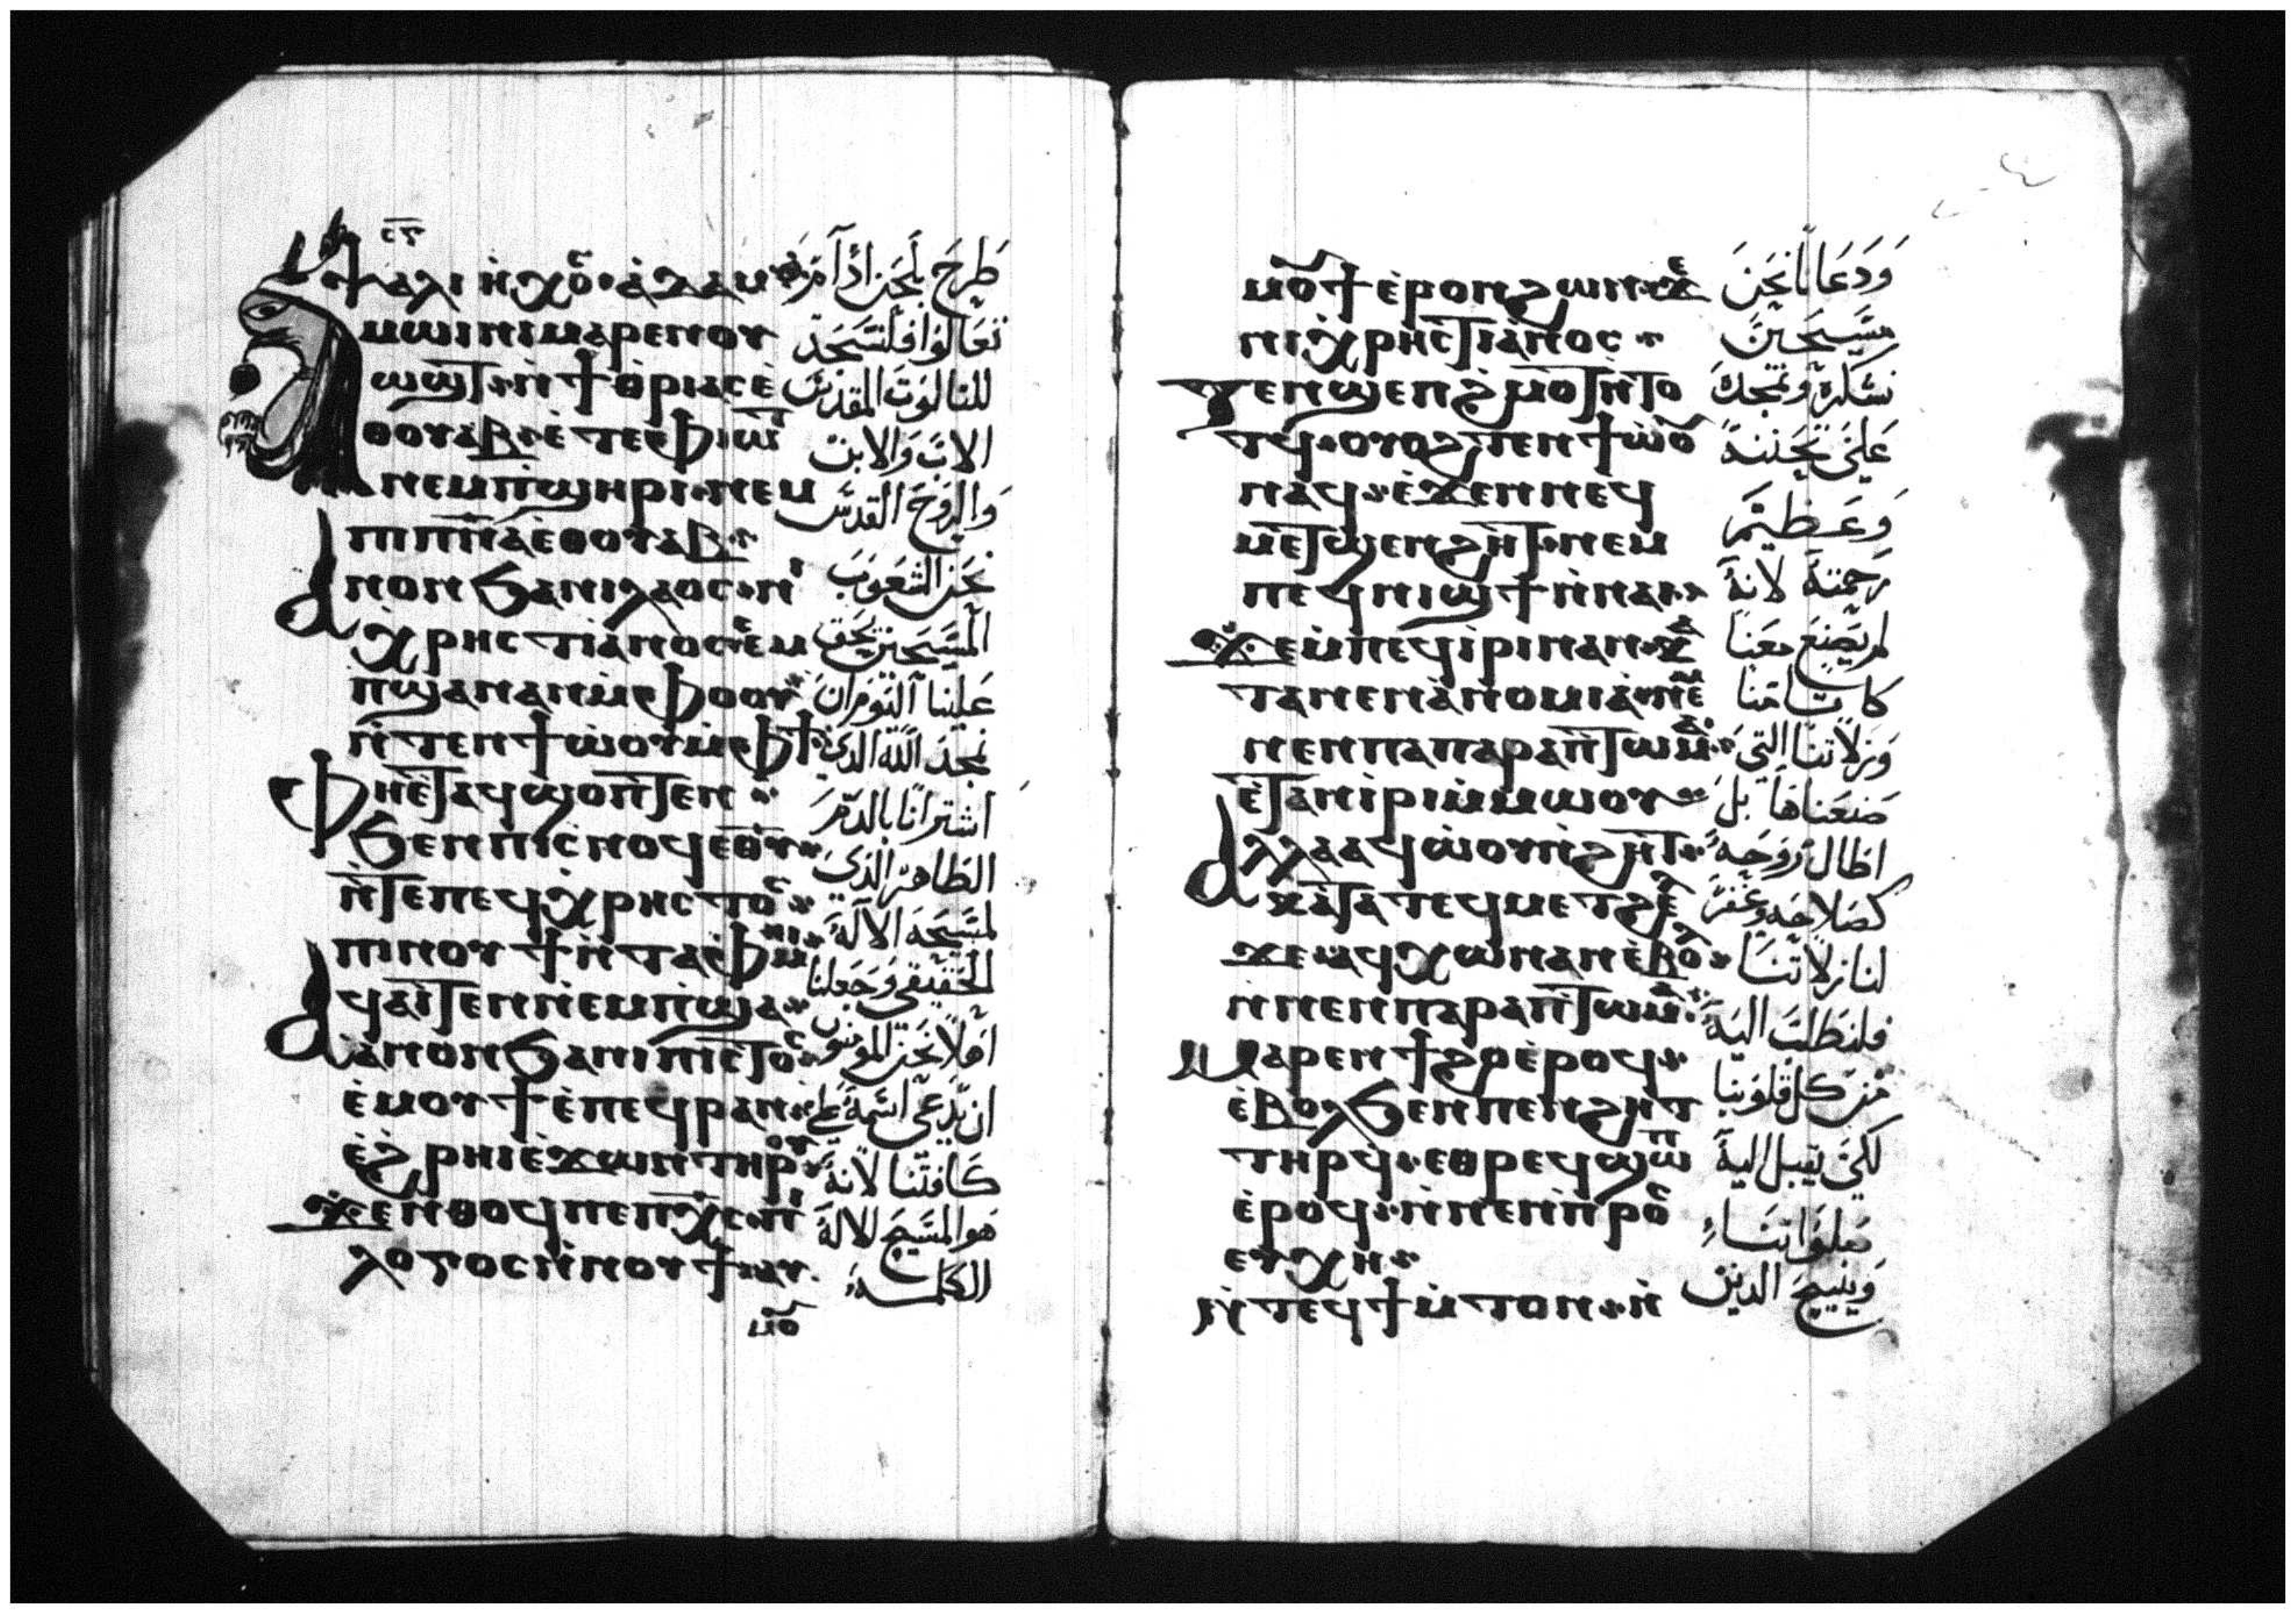 ⲯⲁⲗⲓ ⲛ̀ⲭⲟ̅ⲥ ⲁ̀ⲇⲁⲙ
ⲙⲱⲓⲛⲓ ⲙⲁⲣⲉⲛⲟⲩ
ⲱϣⲧ ⲛ̀ϯⲑⲣⲓⲁⲥ ⲉ̀
ⲑⲟⲩⲁⲃ ⲉ̀ⲧⲉ ⲫⲓⲱⲧ
ⲛⲉⲙ ⲡ̀ϣⲏⲣⲓ ⲛⲉⲙ
ⲡⲓⲡ̅ⲛ̅ⲁ ⲉⲑⲟⲩⲁⲃ
ⲁⲛⲟⲛ ϧⲁⲛⲓⲗⲁⲟⲥ ⲛ̀
ⲭⲣⲏⲥⲧⲓⲁⲛⲟⲥ ϧⲉⲙ
ⲡϣⲁⲛⲁⲛ ⲙ̀ⲫⲟⲟⲩ
ⲛ̀ⲧⲉⲛϯⲱ̀ⲟⲩ ⲙ̀ⲫϯ
ⲫⲏⲉ̀ⲧⲁϥϣⲟⲡⲧⲉⲛ
ϧⲉⲛ ⲡⲓⲥⲛⲟϥ ⲉⲑⲩ
ⲛ̀ⲧⲉ ⲡⲉϥⲭⲣⲏⲥⲧⲟⲥ
ⲡⲓⲛⲟⲩϯ ⲛ̀ⲧⲁⲫⲙⲏⲓ
ϥⲁⲓⲧⲉⲛ ⲛⲉⲙⲡ̀ϣⲁ
ⲁ̀ⲛⲟⲛ ϧⲁⲛⲓⲡⲓⲥⲧⲟⲥ
ⲉ̀ⲙⲟⲩϯ ⲉ̀ⲡⲉϥⲣⲁⲛ
ⲉ̀ϩⲣⲏⲓ ⲉ̀ϫⲱⲛ ⲧⲏⲣⲟⲩ
ϫⲉ ⲛ̀ⲑⲟϥ ⲡⲉ ⲡⲭ̅ⲥ ⲡⲓ
ⲗⲟⲅⲟⲥ ⲛ̀ⲛⲟⲩϯ
ⲙⲟⲩ
طرح بلحن ادام
تعالوا فلنسجد
للثالوث المقدس
الاب والابن
والروح القدس
نحن الشعوب
المسيحين بحق
علينا اليوم ان
نمجد الله الذي
اشترانا بالدم
الطاهر الذي
لمسيحه الاله
الحقيقي وجعلنا
اهلا نحن المومنون
ان يدعي اسمه علي
كافتنا لانه
هو المسيح الاله
الكلمه
ⲙⲟⲩϯ ⲉ̀ⲣⲟⲛ ϩⲱⲛ ϫⲉ
ⲛⲓⲭⲣⲏⲥⲧⲓⲁⲛⲟⲥ
ⲧⲉⲛϣⲉⲡϩⲙⲟⲧ ⲛ̀ⲧⲟ
ⲧϥ ⲟⲩⲟϩ ⲧⲉⲛϯⲱ̀ⲟⲩ
ⲛⲁϥ ⲉ̀ϫⲉⲛ ⲛⲉϥ
ⲙⲉⲧϣⲉⲛϩⲏⲧ ⲛⲉⲙ
ⲡⲉϥⲛⲓϣϯ ⲛ̀ⲛⲁⲓ
ϫⲉ ⲙ̀ⲡⲉϥⲓ̀ⲣⲓ ⲛⲁⲛ ⲕⲁ
ⲧⲁ ⲛⲉⲛⲁ̀ⲛⲟⲙⲓⲁ ⲛⲉⲙ
ⲛⲉⲛⲡⲁⲡⲁⲣⲁⲡⲧⲱⲙⲁ
ⲉ̀ⲧⲁⲛⲓ̀ⲣⲓ ⲙ̀ⲙⲱⲟⲩ
ⲁⲗⲗⲁ ⲁϥⲱ̀ⲟⲩⲛ̀ϩⲏⲧ
ⲕⲁⲧⲁ ⲧⲉϥⲙⲉⲧϩⲉ
ϫⲉ ⲁϥⲭⲱ ⲛⲁⲛ ⲉ̀ⲃⲟⲗ
ⲛ̀ⲛⲉⲛⲡⲁⲣⲁⲡⲧⲱⲙⲁ
ⲙⲁⲣⲉⲛϯϩⲟ ⲉ̀ⲣⲟϥ
ⲉ̀ⲃⲟⲗϧⲉⲛ ⲡⲉⲛϩⲏⲧ
ⲧⲏⲣϥ ⲉⲑⲣⲉϥϣⲱⲡ
ⲉ̀ⲣⲟϥ ⲛ̀ⲛⲉⲛⲡⲣⲟⲥ
ⲉⲩⲭⲏ
ⲛ̀ⲧⲉϥϯⲙ̀ⲧⲟⲛ ⲛ̀
ودعانا نحن
مسيحين
نشكره ونمجده
علي تحننه
وعظيم
رحمته لانه
لم يصنع معنا
كاثامنا
وزلاتنا التي
صنعناها بل
اطال روحه
كصلاحه وغفر
لنا زلاتنا
فلنطلب اليه
من كل قلوبنا
لكي يقبل اليه
صلواتنا
وينيح الذين